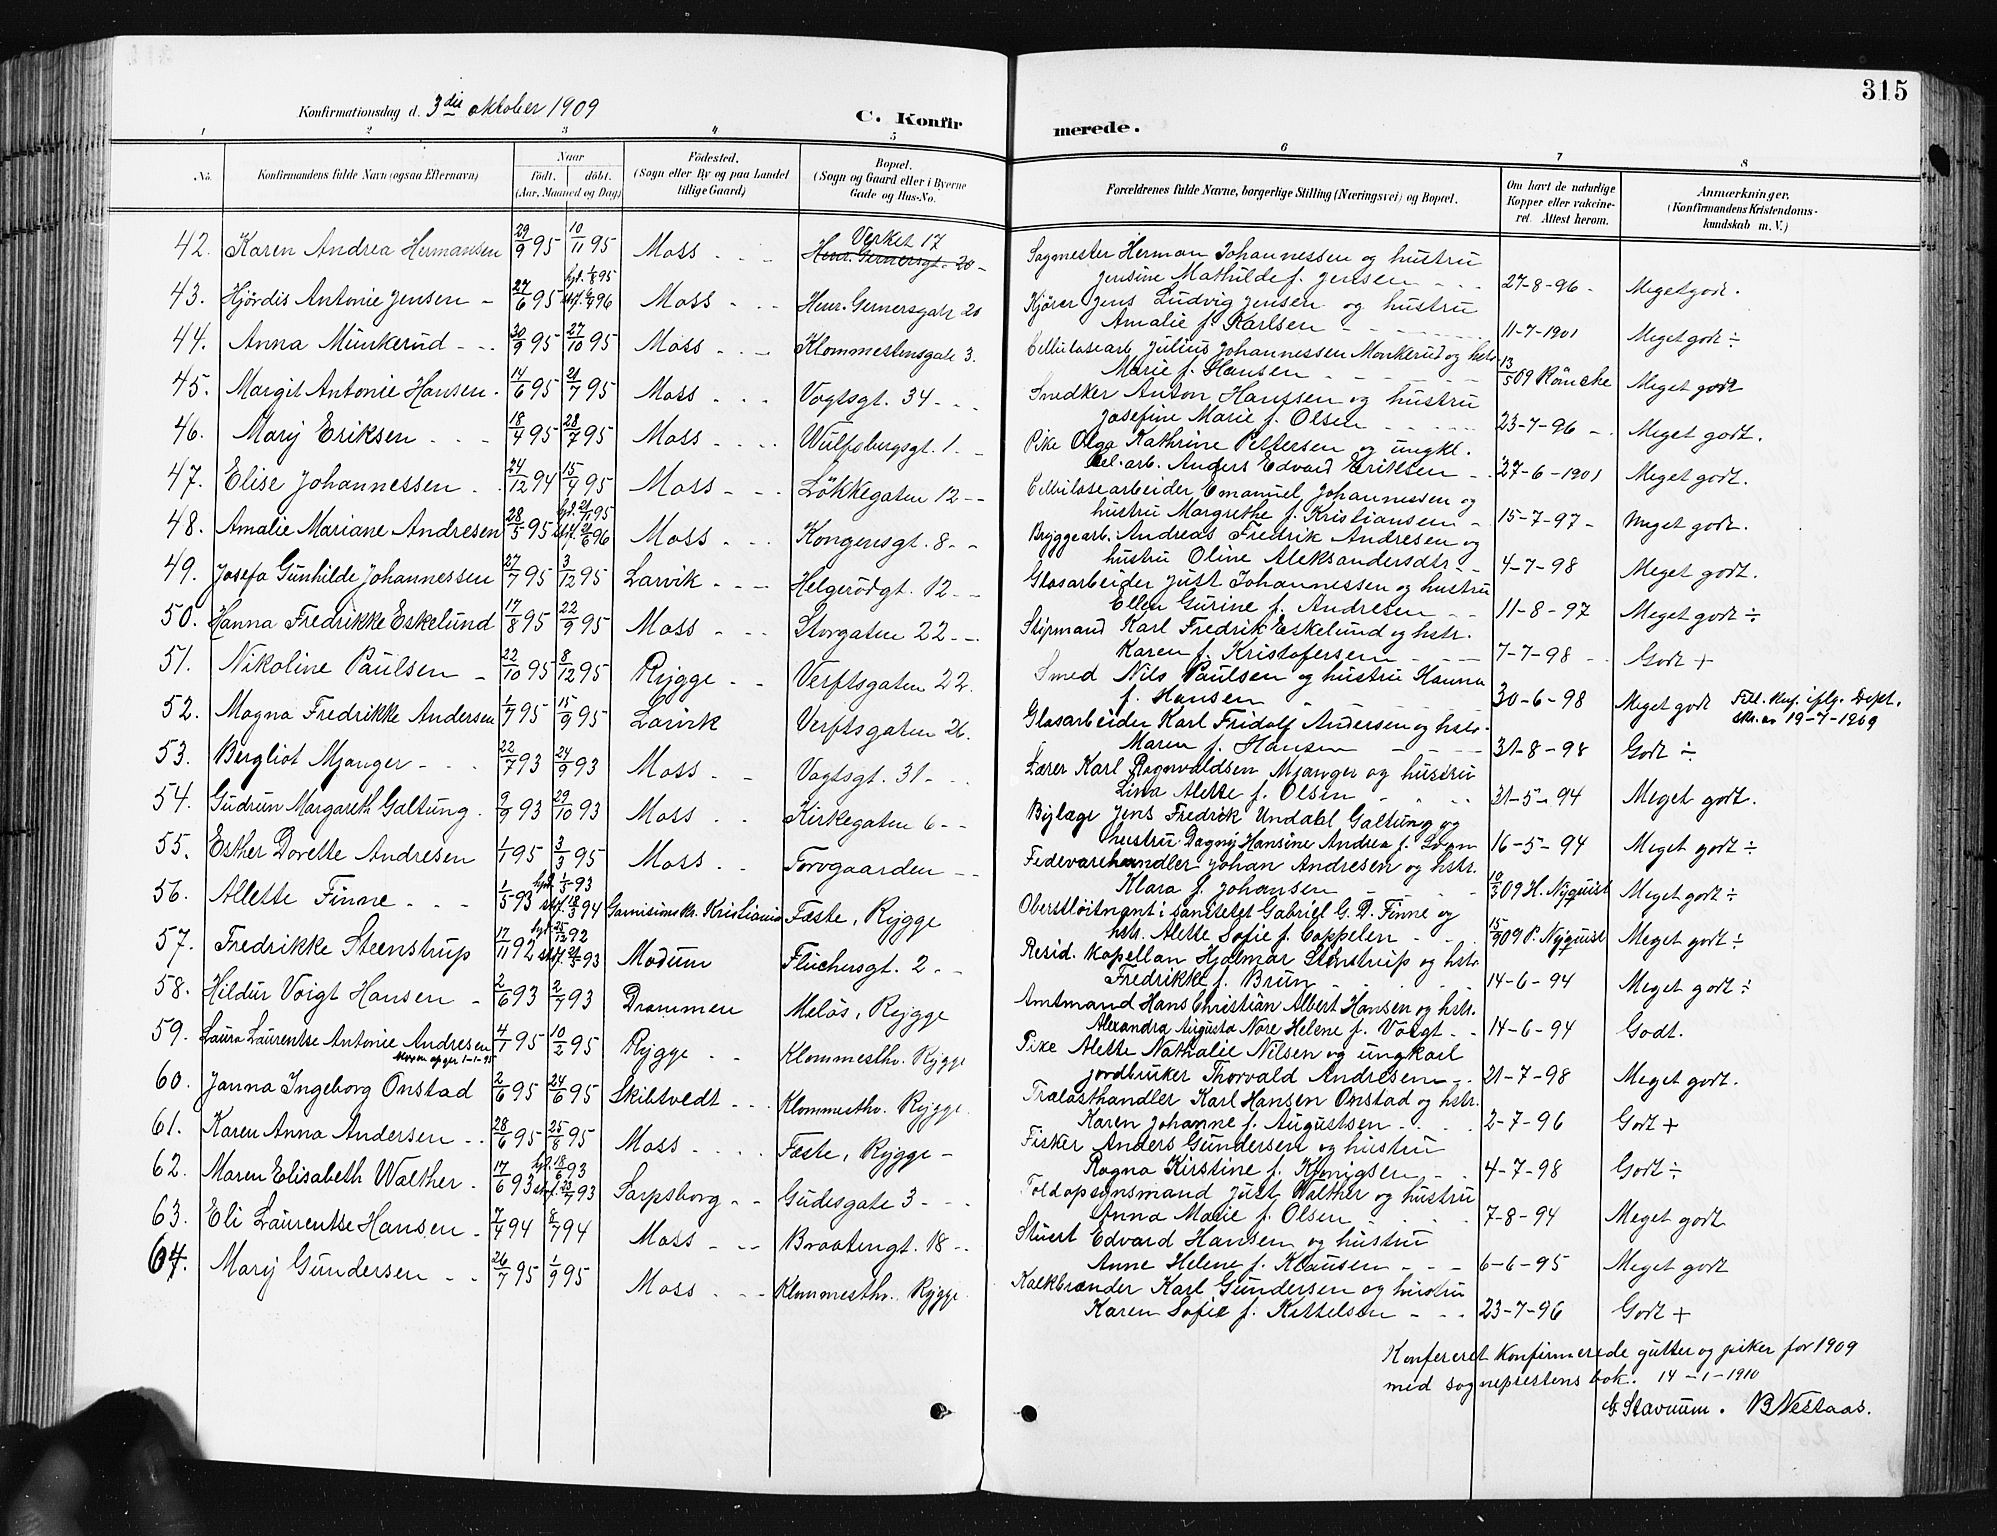 315
Konfirmationsdag d. 3die oktober 1909
C. Konfirmerede.
1 2 3 4 5 6 7 8
No. Konfirmandens fulde Navn (ogsaa Efternavn) Naar født. døbt. (Aar, Maaned og Dag) Fødested. (Sogn eller By og paa Landet tillige Gaard) Bopæl. (Sogn og Gaard eller i Byerne Gade og Hus-No. Forældrenes fulde Navne, borgerlige Stilling (Næringsvei) og Bopæl. Om havt de naturlige Kopper eller vakcineret. Attest herom. Anmærkninger. (Konfirmandens Kristendomskundskab m. V.)
42. Karen Andrea Hermansen 29/9 95 10/11 95 Moss Verket 17 Henr. Gernersgt. 20 Sagmester Herman Johannessen og hustru
Jensine Mathilde f. Jensen 27-8-96 Meget godt.
43. Hjördis Antonie Jensen 27/6 95 hjd. 1/8 95 stf. 6/4 96 Moss Henr. Gernersgate 20 Kjörer Jens Ludvig Jensen og hustru
Amalie f. Karlsen 11-7-1901 Meget godt ÷
44. Anna Munkerud 20/9 95 27/10 95 Moss Klommestensgate 3. Cellulosearb. Julius Johannessen Monkerud og hstr.
Marie f. Hansen 13/5 09 Röncke Meget godt
45. Margit Antonie Hansen 14/6 95 21/7 95 Moss Vogtsgt. 34 Snedker Anton Hanssen og hustru
Josefine Marie f. Olsen 23-7-96 Meget godt.
46. Mary Eriksen 18/4 95 28/7 95 Moss Wulfsbergsgt. 1. Pike Olga Kathrine Pettersen og ungkl.
Cel.arb. Anders Edvard Eriksen 27-6-1901 Meget godt.
47. Elise Johannessen 24/12 94 15/9 95 Moss Løkkegaten 12 Cellulosearbeider Emanuel Johannessen og
hustru Margrethe f. Kristiansen 15-7-97 Meget godt.
48. Amalie Mariane Andresen 28/5 95 hjd. 21/11 95 stf. 21/6 96 Moss Kongensgt. 8 Bryggearb. Andreas Fredrik Andresen og
hustru Oline Aleksandersdtr. 4-7-98 Meget godt.
49. Josefa Gunhilde Johannessen 27/7 95 3/12 95 Larvik Helgerödgt. 12 Glasarbeider Just Johannessen og hustru
Ellen Gurine f. Andresen 11-8-97 Meget godt ÷
50. Hanna Fredrikke Eskelund 17/8 95 22/9 95 Moss Storgaten 22 Stirmand Karl Fredrik Eskelund og hstr.
Karen f. Kristofersen 7-7-98 Godt +
51. Nikoline Paulsen 22/10 95 8/12 95 Rygge Verftsgaten 22. Smed Nils Paulsen og hustru Hanna
f. Hansen 30-6-98 Meget godt Till. konf. iflg. Dept. skr. av 19-7-1909
52. Magna Fredrikke Andersen 1/7 95 15/9 95 Larvik Verftsgaten 26. Glasarbeider Karl Fridolf Andersen og hstr.
Maren f. Hansen 31-8-98 Godt ÷
53. Bergliot Mjanger 22/7 93 24/9 93 Moss Vogtsgt. 31 Lærer Karl Ragnvaldsen Mjanger og hustru
Lina Alette f. Olsen 31-5-94 Meget godt.
54. Gudrun Margareth Galtung. 9/9 93 29/10 93 Moss Kirkegaten 6 Bylæge Jens Fredrik Undahl Galtung og
hustru Dagny Hansine Andrea f. Loan 16-5-94 Meget godt ÷
55. Esther Dorette Andresen 1/1 95 3/3 95 Moss Torvgaarden Fedevarehandler Johan Andresen og hstr.
Klara f. Johansen 10/3 09 H. Nyquist Meget godt ÷
56. Alette Finne 1/5 93 hjd. 1/5 93 stf. 18/3 94 Garnisions kr. Kristiania Fæste, Rygge Oberstløitnant i sanitetet Gabriel G. D. Finne og
hstr. Alette Sofie f. Coppelen 15/9 09 P. Nyquist Meget godt ÷
57. Fredrikke Steenstrup 17/11 92 hjd. 25/12 92 stf. 21/5 93 Modum Fluchersgt. 2 Resid. Kapellan Hjalmar Stenstrup og hstr.
Fredrikke f. Brun 14-6-94 Meget godt ÷
58. Hildur Voigt Hansen 2/6 93 2/7 93 Drammen Melös, Rygge Amtmand Hans Christian Albert Hansen og hstr.
Alexandra Augusta Nore Helene f. Voigt 14-6-94 Godt.
59. Laura Laurentse Antonie Andresen 4/1 95 10/2 95 Rygge Klommesthv. Rygge Pike Alette Nathalie Nilsen og ungkarl
moren opgir 1-1-95
jordbruker Thorvald Andresen 21-7-98 Meget godt.
60. Janna Ingeborg Onstad 2/6 95 24/6 95 Skibtvedt Klommesthv. Rygge. Trælasthandler Karl Hansen Onstad og hstr.
Karen Johanne f. Augustsen 2-7-96 Godt +
61. Karen Anna Andersen 28/6 95 25/8 95 Moss Fæste, Rygge Fisker Anders Gundersen og hustru
Ragna Kirstine f. Kønigsen 4-7-98 Godt ÷
62. Maren Elisabeth Walther. 17/6 93 hjd. 18/6 93 stf. 23/7 93 Sarpsborg Gudesgate 3 Toldopsynsmand Just Walther og hustru
Anna Marie f. Olsen 7-8-94 Meget godt
63. Eli Laurentse Hansen 7/4 94 8/7 94 Moss Braatengt. 18 Stuert Edvard Hansen og hustru
Anne Helene f. Klausen 6-6-95 Meget godt
64. Mary Gundersen 26/7 95 1/9 95 Moss Klommesthv. Rygge. Kalkbrænder Karl Gundersen og hustru
Karen Sofie f. Kittelsen 23-7-96 Godt +
Konfereret Konfirmerede gutter og piker for 1909
med sogneprestens bok. 14-1-1910
G. Stavnum. B Nestaas.